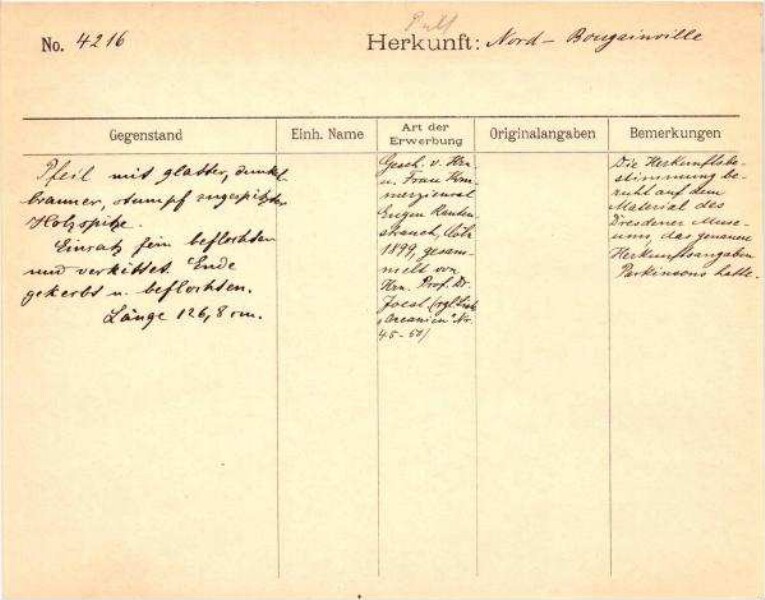 No. 4216
Herkunft: Nord-Bougainville
Gegenstand
Einh. Name
Art der Erwerbung
Originalangaben
Bemerkungen
Pfeil mit glatter, dunkel-
brauner, stumpf zugespitzter
Holzspitze.
Einsatz fein beflochten
und verkittet. Ende
gekerbt u. beflochten.
Länge 126,8 cm.
Gesch. v. Hrn
u. Frau Kom-
merzienrat
Eugen Rauten-
strauch, Cöln
1899, gesam-
melt von
Hrn. Prof. Dr.
Joest (vgl. List.
"Oceanien" Nr.
45-51)
Die Herkunftsbe-
stimmung be-
ruht auf dem
Material des
Dresdener Muse-
ums, das genauen
Herkunftsangaben
Parkinsons hatte.